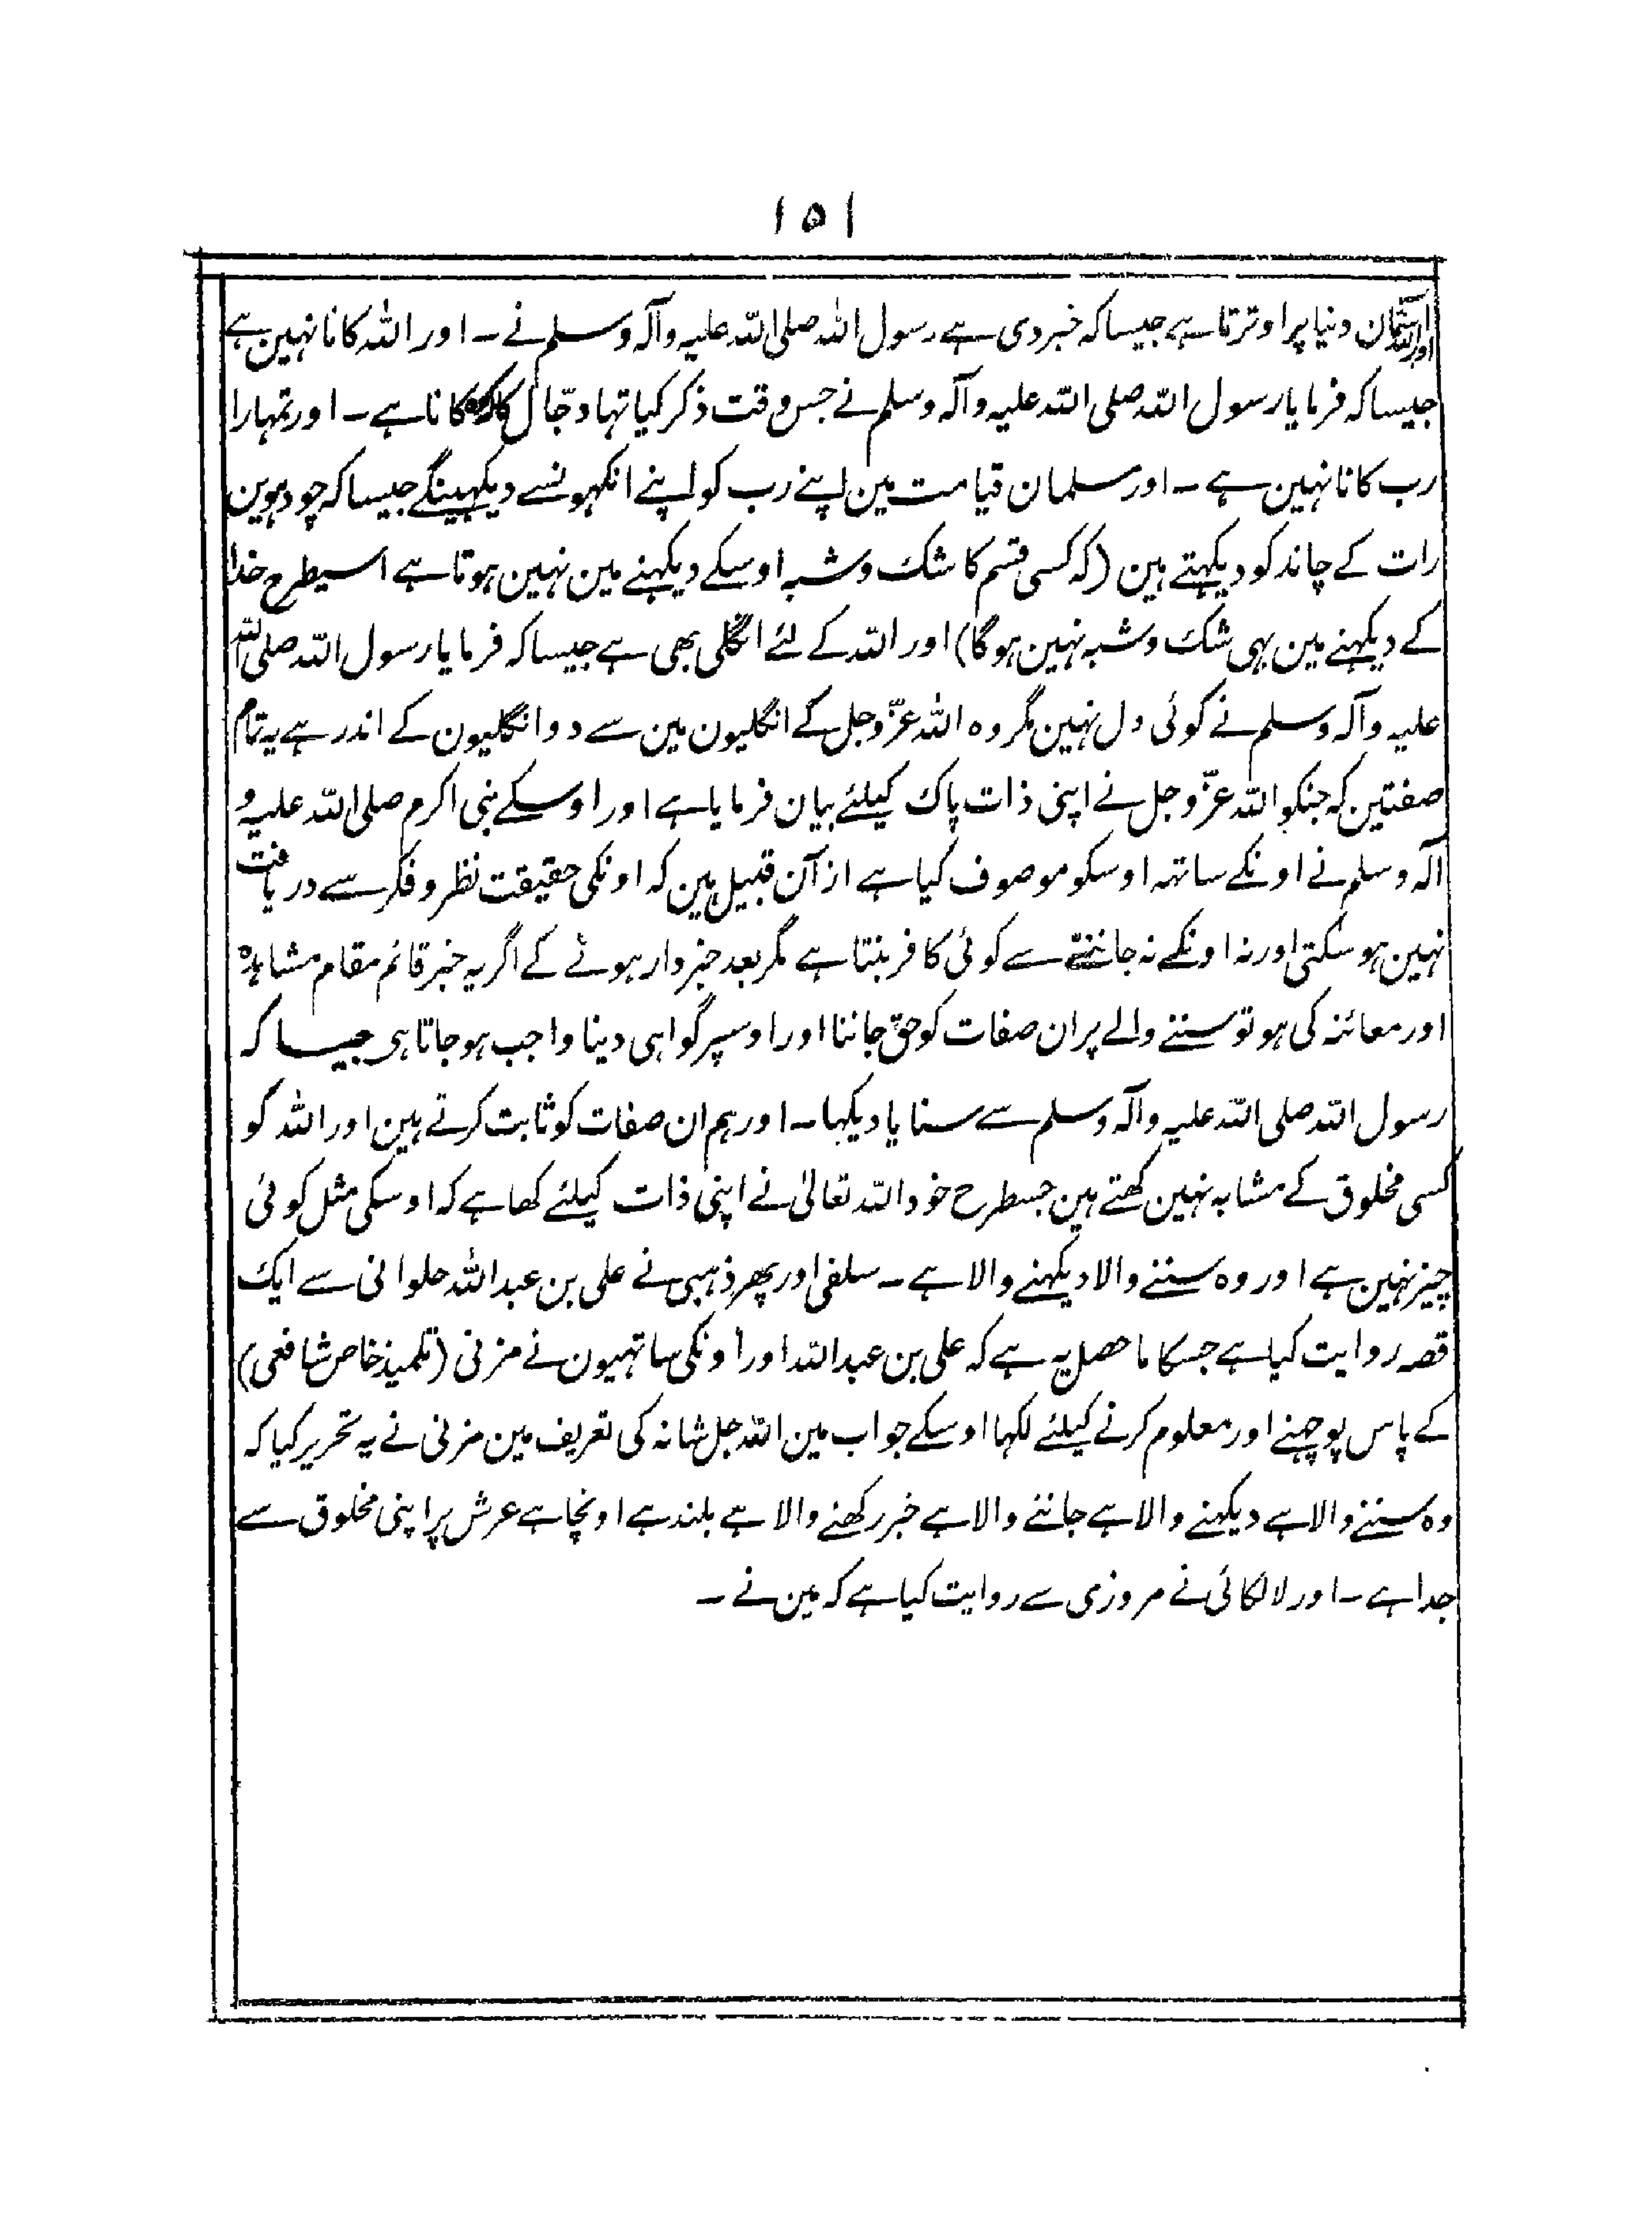 ۱۵۱
اور اللہ آسمان دنیا پر اوترتا ہے جیسا کہ خبر دی ہے رسول اللہ صلی اللہ علیہ وآلہ وسلم نے ۔ اور اللہ کانا نہین ہے
جیسا کہ فرمایا رسول اللہ صلی اللہ علیہ وآلہ وسلم نے جس وقت ذکر کیا تہا دجّال کا کانا ہے ۔ اور تمہارا
رب کانا نہین ہے ۔ اور مسلمان قیامت مین اپنے رب کو اپنے انکہونسے دیکہینگے جیسا کہ چودہوین
رات کے چاند کو دیکہتے ہین (کہ کسی قسم کا شک و شبہ اوسکے دیکہنے مین نہین ہوتا ہے اسیطرح خدا
کے دیکہنے مین بہی شک و شبہ نہین ہوگا) اور اللہ کے لئے انگلی بھی ہے جیسا کہ فرمایا رسول اللہ صلی اللہ
علیہ وآلہ وسلم نے کوئی دل نہین مگر وہ اللہ عزّوجل کے انگلیون مین سے دو انگلیون کے اندر ہے یہ تمام
صفتین کہ جنکو اللہ عزّوجل نے اپنی ذات پاک کیلئے بیان فرمایا ہے اور اوسکے نبی اکرم صلی اللہ علیہ و
آلہ وسلم نے اونکے ساتہہ اوسکو موصوف کیا ہے از آن قبیل ہین کہ اونکی حقیقت نظر و فکر سے دریافت
نہین ہو سکتی اور نہ اونکے نہ جاننے سے کوئی کافر بنتا ہے مگر بعد خبردار ہونے کے اگر یہ خبر قائم مقام مشاہدہ
اور معائنہ کی ہو تو سننے والے پر ان صفات کو حق جاننا اور اوسپر گواہی دینا واجب ہو جاتا ہی جیسا کہ
رسول اللہ صلی اللہ علیہ وآلہ وسلم سے سنا یا دیکہا ۔ اور ہم ان صفات کو ثابت کرتے ہین اور اللہ کو
کسی مخلوق کے مشابہ نہین کھتے ہین جسطرح خود اللہ تعالیٰ نے اپنی ذات کیلئے کھا ہے کہ اوسکی مثل کوئی
چیز نہین ہے اور وہ سننے والا دیکہنے والا ہے ۔ سلفی اور پھر ذہبی نے علی بن عبداللہ حلوانی سے ایک
قصہ روایت کیا ہے جسکا ماحصل یہ ہے کہ علی بن عبداللہ اور اونکی ساتہیون نے مزنی (تلمیذ خاص شافعی)
کے پاس پوچہنے اور معلوم کرنے کیلئے لکہا اوسکے جواب مین اللہ جل شانہ کی تعریف مین مزنی نے یہ تحریر کیا کہ
وہ سننے والا ہے دیکہنے والا ہے جاننے والا ہے خبر رکھنے والا ہے بلند ہے اونچا ہے عرش پر اپنی مخلوق سے
جدا ہے ۔ اور لالکائی نے مروزی سے روایت کیا ہے کہ مین نے ۔